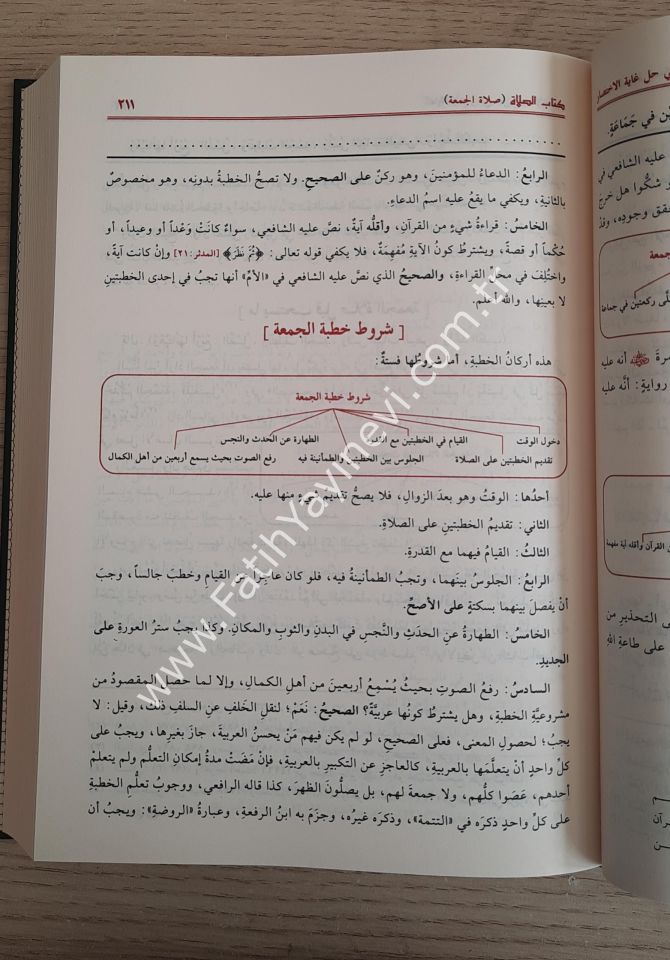 كتاب الصلاة (صلاة الجمعة)
٢١١
الرابعُ: الدعاءُ للمؤمنين، وهو ركنٌ على الصحيحِ. ولا تصحُّ الخطبةُ بدونِه، وهو مخصوصٌ
بالثانيةِ، ويكفي ما يقعُ عليه اسمُ الدعاءِ.
الخامسُ: قراءةُ شيءٍ من القرآنِ، وأقلُّه آيةٌ، نصَّ عليه الشافعي، سواءٌ كانَتْ وَعْداً أو وعيداً، أو
حُكْماً أو قصةً، ويشترطُ كونُ الآيةِ مُفهِمَةً، فلا يكفي قوله تعالى: ﴿ثُمَّ نَظَرَ﴾ [المدثر: ٢١] وإنْ كانت آيةً،
واختُلِفَ في محلِّ القراءةِ، والصحيحُ الذي نصَّ عليه الشافعي في «الأمِّ» أنها تجبُ في إحدى الخطبتينِ
لا بعينِها، والله أعلم.
[ شروط خطبة الجمعة ]
هذه أركانُ الخطبةِ، أما شروطُها فستةٌ:
شروط خطبة الجمعة
دخول الوقت
القيام في الخطبتين مع القدرة
الطهارة عن الحدث والنجس
تقديم الخطبتين على الصلاة
الجلوس بين الخطبتين والطمأنينة فيه
رفع الصوت بحيث يسمع أربعين من أهل الكمال
أحدُها: الوقتُ وهو بعدَ الزوالِ، فلا يصحُّ تقديم شيءٍ منها عليه.
الثاني: تقديمُ الخطبتينِ على الصلاةِ.
الثالثُ: القيامُ فيهما مع القدرةِ.
الرابعُ: الجلوسُ بينَهما، وتجبُ الطمأنينةُ فيه، فلو كان عاجزاً عن القيامِ وخطبَ جالساً، وجبَ
أنْ يفصلَ بينهما بسكتةٍ على الأصحِّ.
الخامسُ: الطهارةُ عن الحدَثِ والنَّجسِ في البدنِ والثوبِ والمكانِ. وكذا يجبُ سترُ العورةِ على
الجديدِ.
السادسُ: رفعُ الصوتِ بحيثُ يُسْمِعُ أربعين من أهلِ الكمالِ، وإلا لما حصَلَ المقصودُ من
مشروعيَّةِ الخطبةِ، وهل يشترطُ كونُها عربيَّةً؟ الصحيحُ: نَعَمْ؛ لنقلِ الخلَفِ عن السلفِ ذلك، وقيل: لا
يجبُ؛ لحصولِ المعنى، فعلى الصحيحِ، لو لم يكن فيهم مَنْ يحسنُ العربيةَ، جازَ بغيرِها، ويجبُ على
كلِّ واحدٍ أنْ يتعلَّمَها بالعربيةِ، كالعاجزِ عن التكبيرِ بالعربيةِ، فإنْ مَضَتْ مدةُ إمكانِ التعلُّمِ ولم يتعلمْ
أحدهم، عَصَوا كلُّهم، ولا جمعةَ لهم، بل يصلُّونَ الظهرَ، كذا قاله الرافعي، ووجوبُ تعلُّمِ الخطبةِ
على كلِّ واحدٍ ذكرَه في «التتمة»، وذكرَه غيرُه، وجزَمَ به ابنُ الرفعةِ، وعبارةُ «الروضةِ»: ويجبُ أن
في حل غاية الاختصار
في جَمَاعَةٍ.
عليه الشافعي في
شكُّوا هل خرج
وجودِه،
ركعتين في جماعة
أنه عليه
روايةٍ: أنَّه عليه
القرآن وأقله آية مفهمة
التحذيرِ من
على طاعةِ اللهِ
www.FatihYayinevi.com.tr